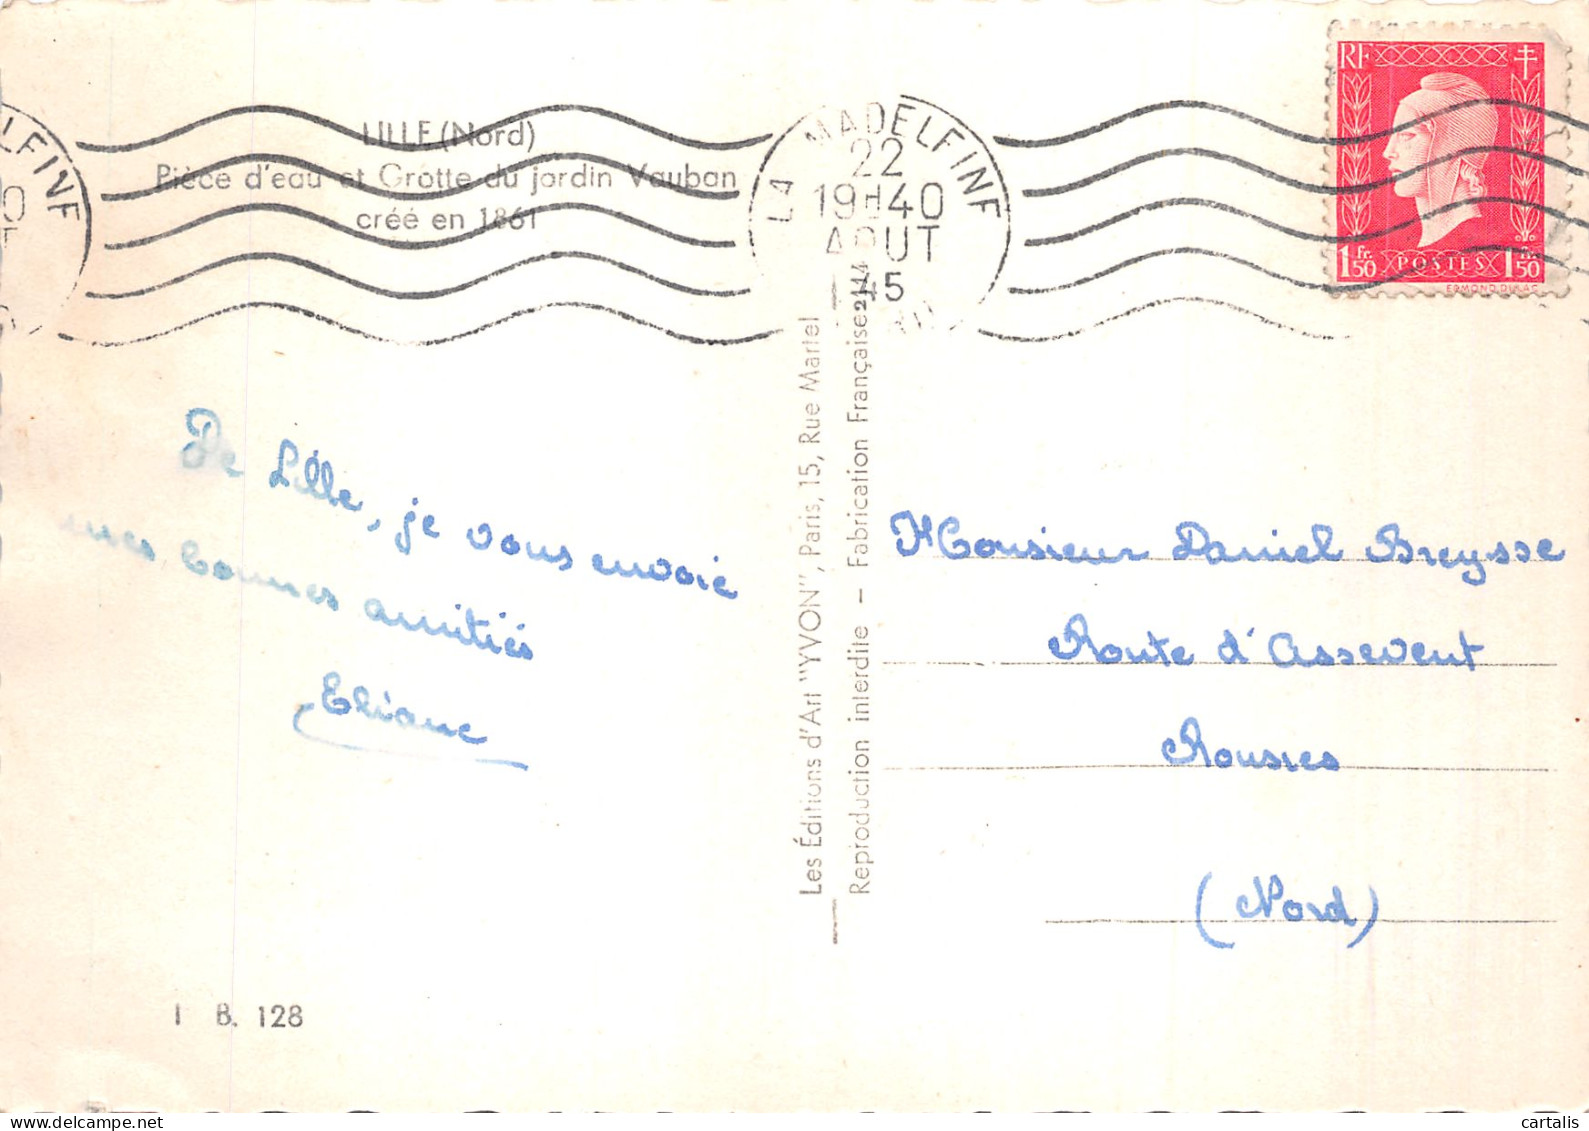 LILLE (Nord)
Pièce d'eau et Grotte du jardin Vauban
créé en 1861
LA MADELEINE
22
19H40
AOUT
45
RF
1 Fr. 50 POSTES 1 Fr. 50
EDMOND DULAC
De Lille, je vous envoie
mes bonnes amitiés
Eliane
Les Éditions d'Art "YVON", Paris, 15, Rue Martel
Reproduction interdite - Fabrication Française
Monsieur Daniel Breysse
Route d'Assevent
Rousies
(Nord)
I B. 128
cartalis | www.delcampe.net